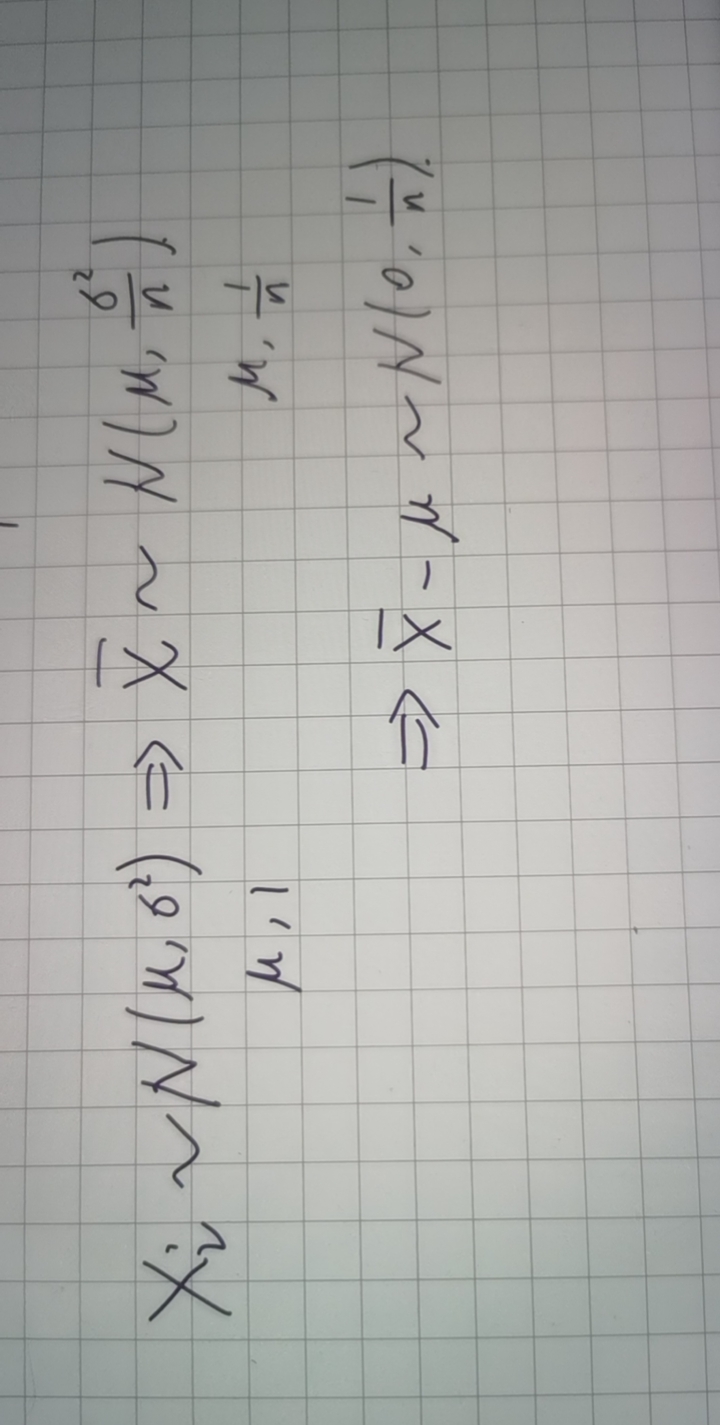 Xᵢ ~ N(μ, σ²) ⇒ X̄ ~ N(μ, σ²/n).
μ, 1 μ, 1/n
⇒ X̄ - μ ~ N(0, 1/n).